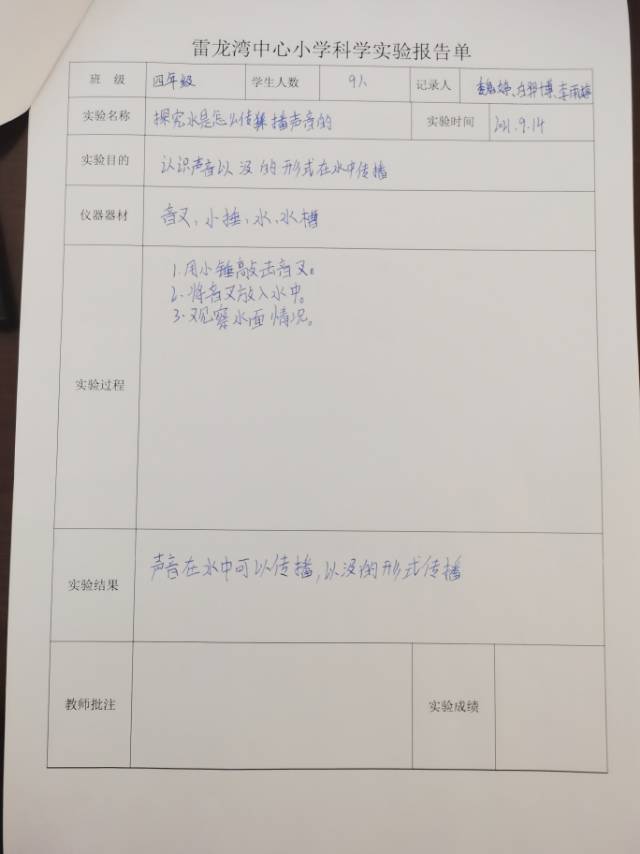 雷龙湾中心小学科学实验报告单
班 级 四年级 学生人数 9人 记录人
实验名称 探究水是怎么传播声音的 实验时间 2021.9.14
实验目的 认识声音以 没 的 形式在水中传播
仪器器材 音叉、小捶、水、水槽
实验过程
1.用小锤敲击音叉。
2.将音叉放入水中。
3.观察水面情况。
实验结果 声音在水中可以传播,以没的形式传播
教师批注 实验成绩